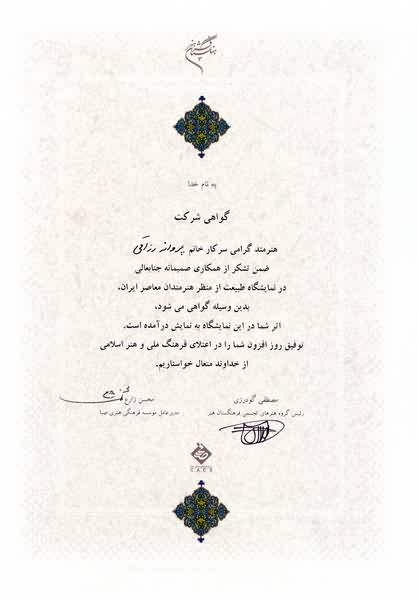 به نام خدا
گواهی شرکت
هنرمند گرامی سرکار خانم پروانه رزاقی
ضمن تشکر از همکاری صمیمانه جنابعالی
در نمایشگاه طبیعت از منظر هنرمندان معاصر ایران.
بدین وسیله گواهی می شود،
اثر شما در این نمایشگاه به نمایش درآمده است.
توفیق روز افزون شما را در اعتلای فرهنگ ملی و هنر اسلامی
از خداوند متعال خواستاریم.
مصطفی گودرزی
رئیس گروه هنرهای تجسمی فرهنگستان هنر
محسن زارع
مدیرعامل موسسه فرهنگی هنری صبا
CACS